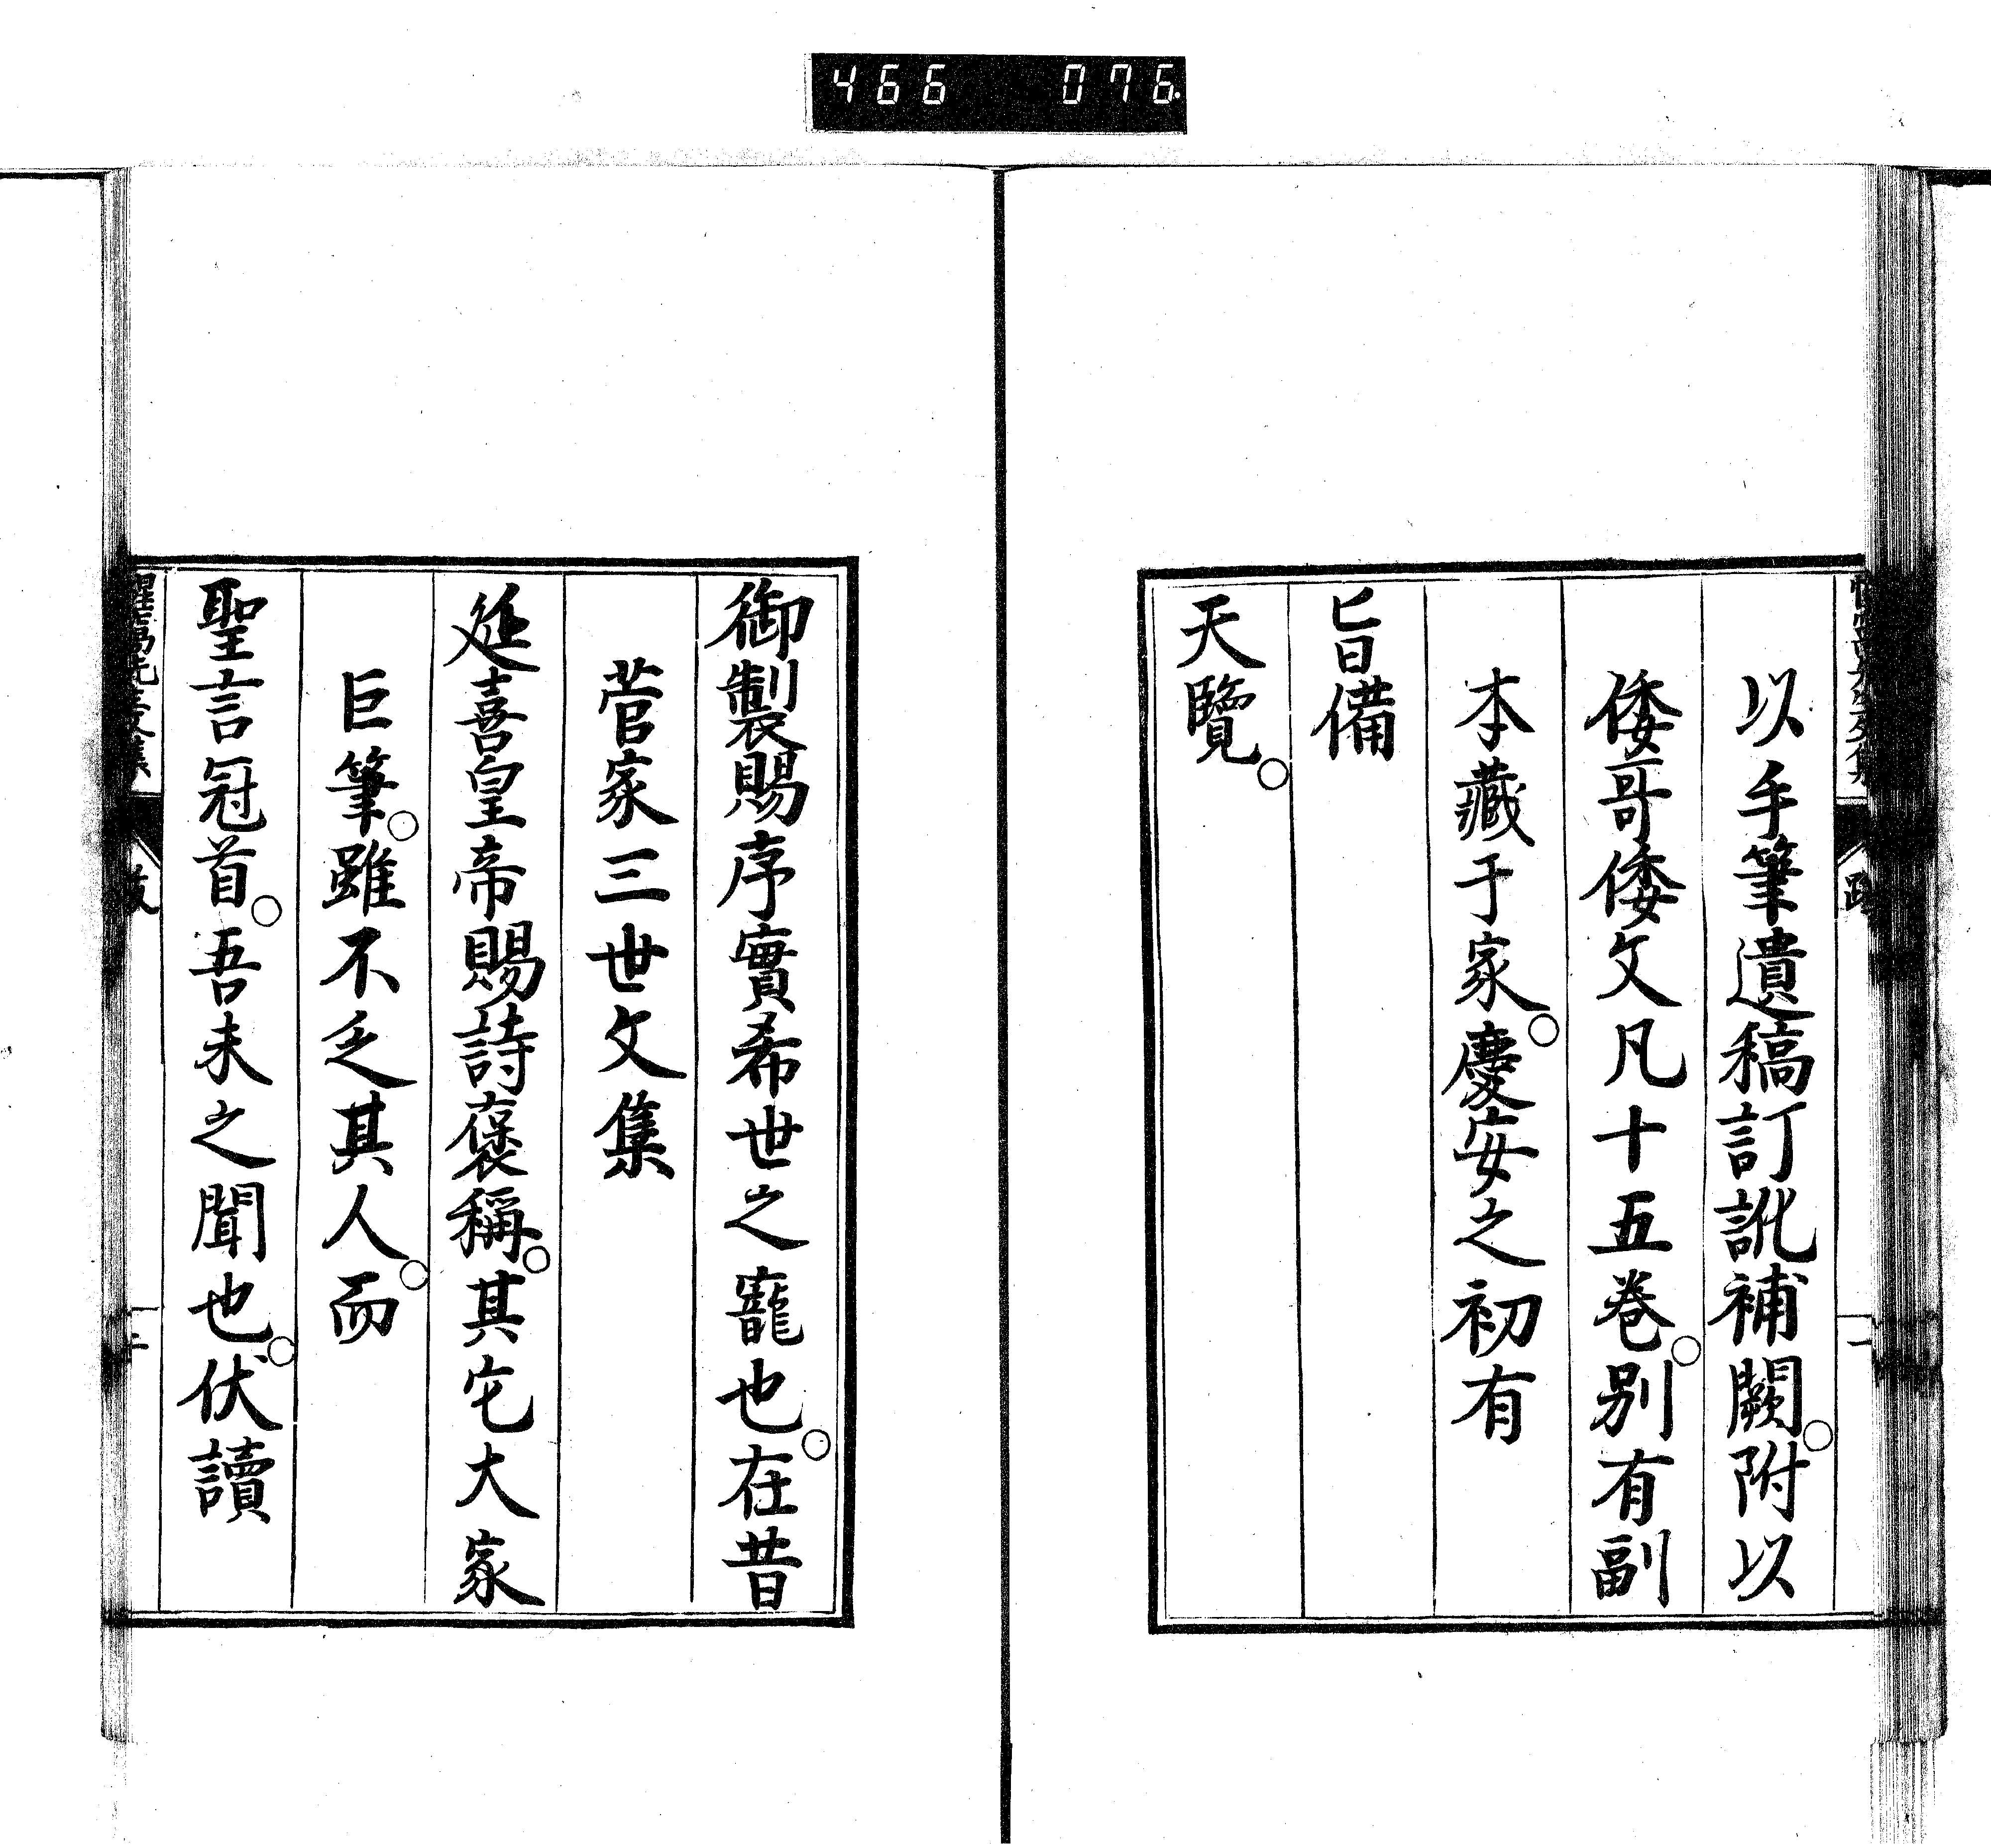 466 076
以手筆遺稿訂訛補闕。附以
倭哥倭文凡十五卷。別有副
本藏于家。慶安之初有
旨備
天覽。
御製賜序實希世之寵也。在昔
菅家三世文集
延喜皇帝賜詩褒稱。其宅大家
巨筆。雖不乏其人。而
聖言冠首。吾未之聞也。伏讀